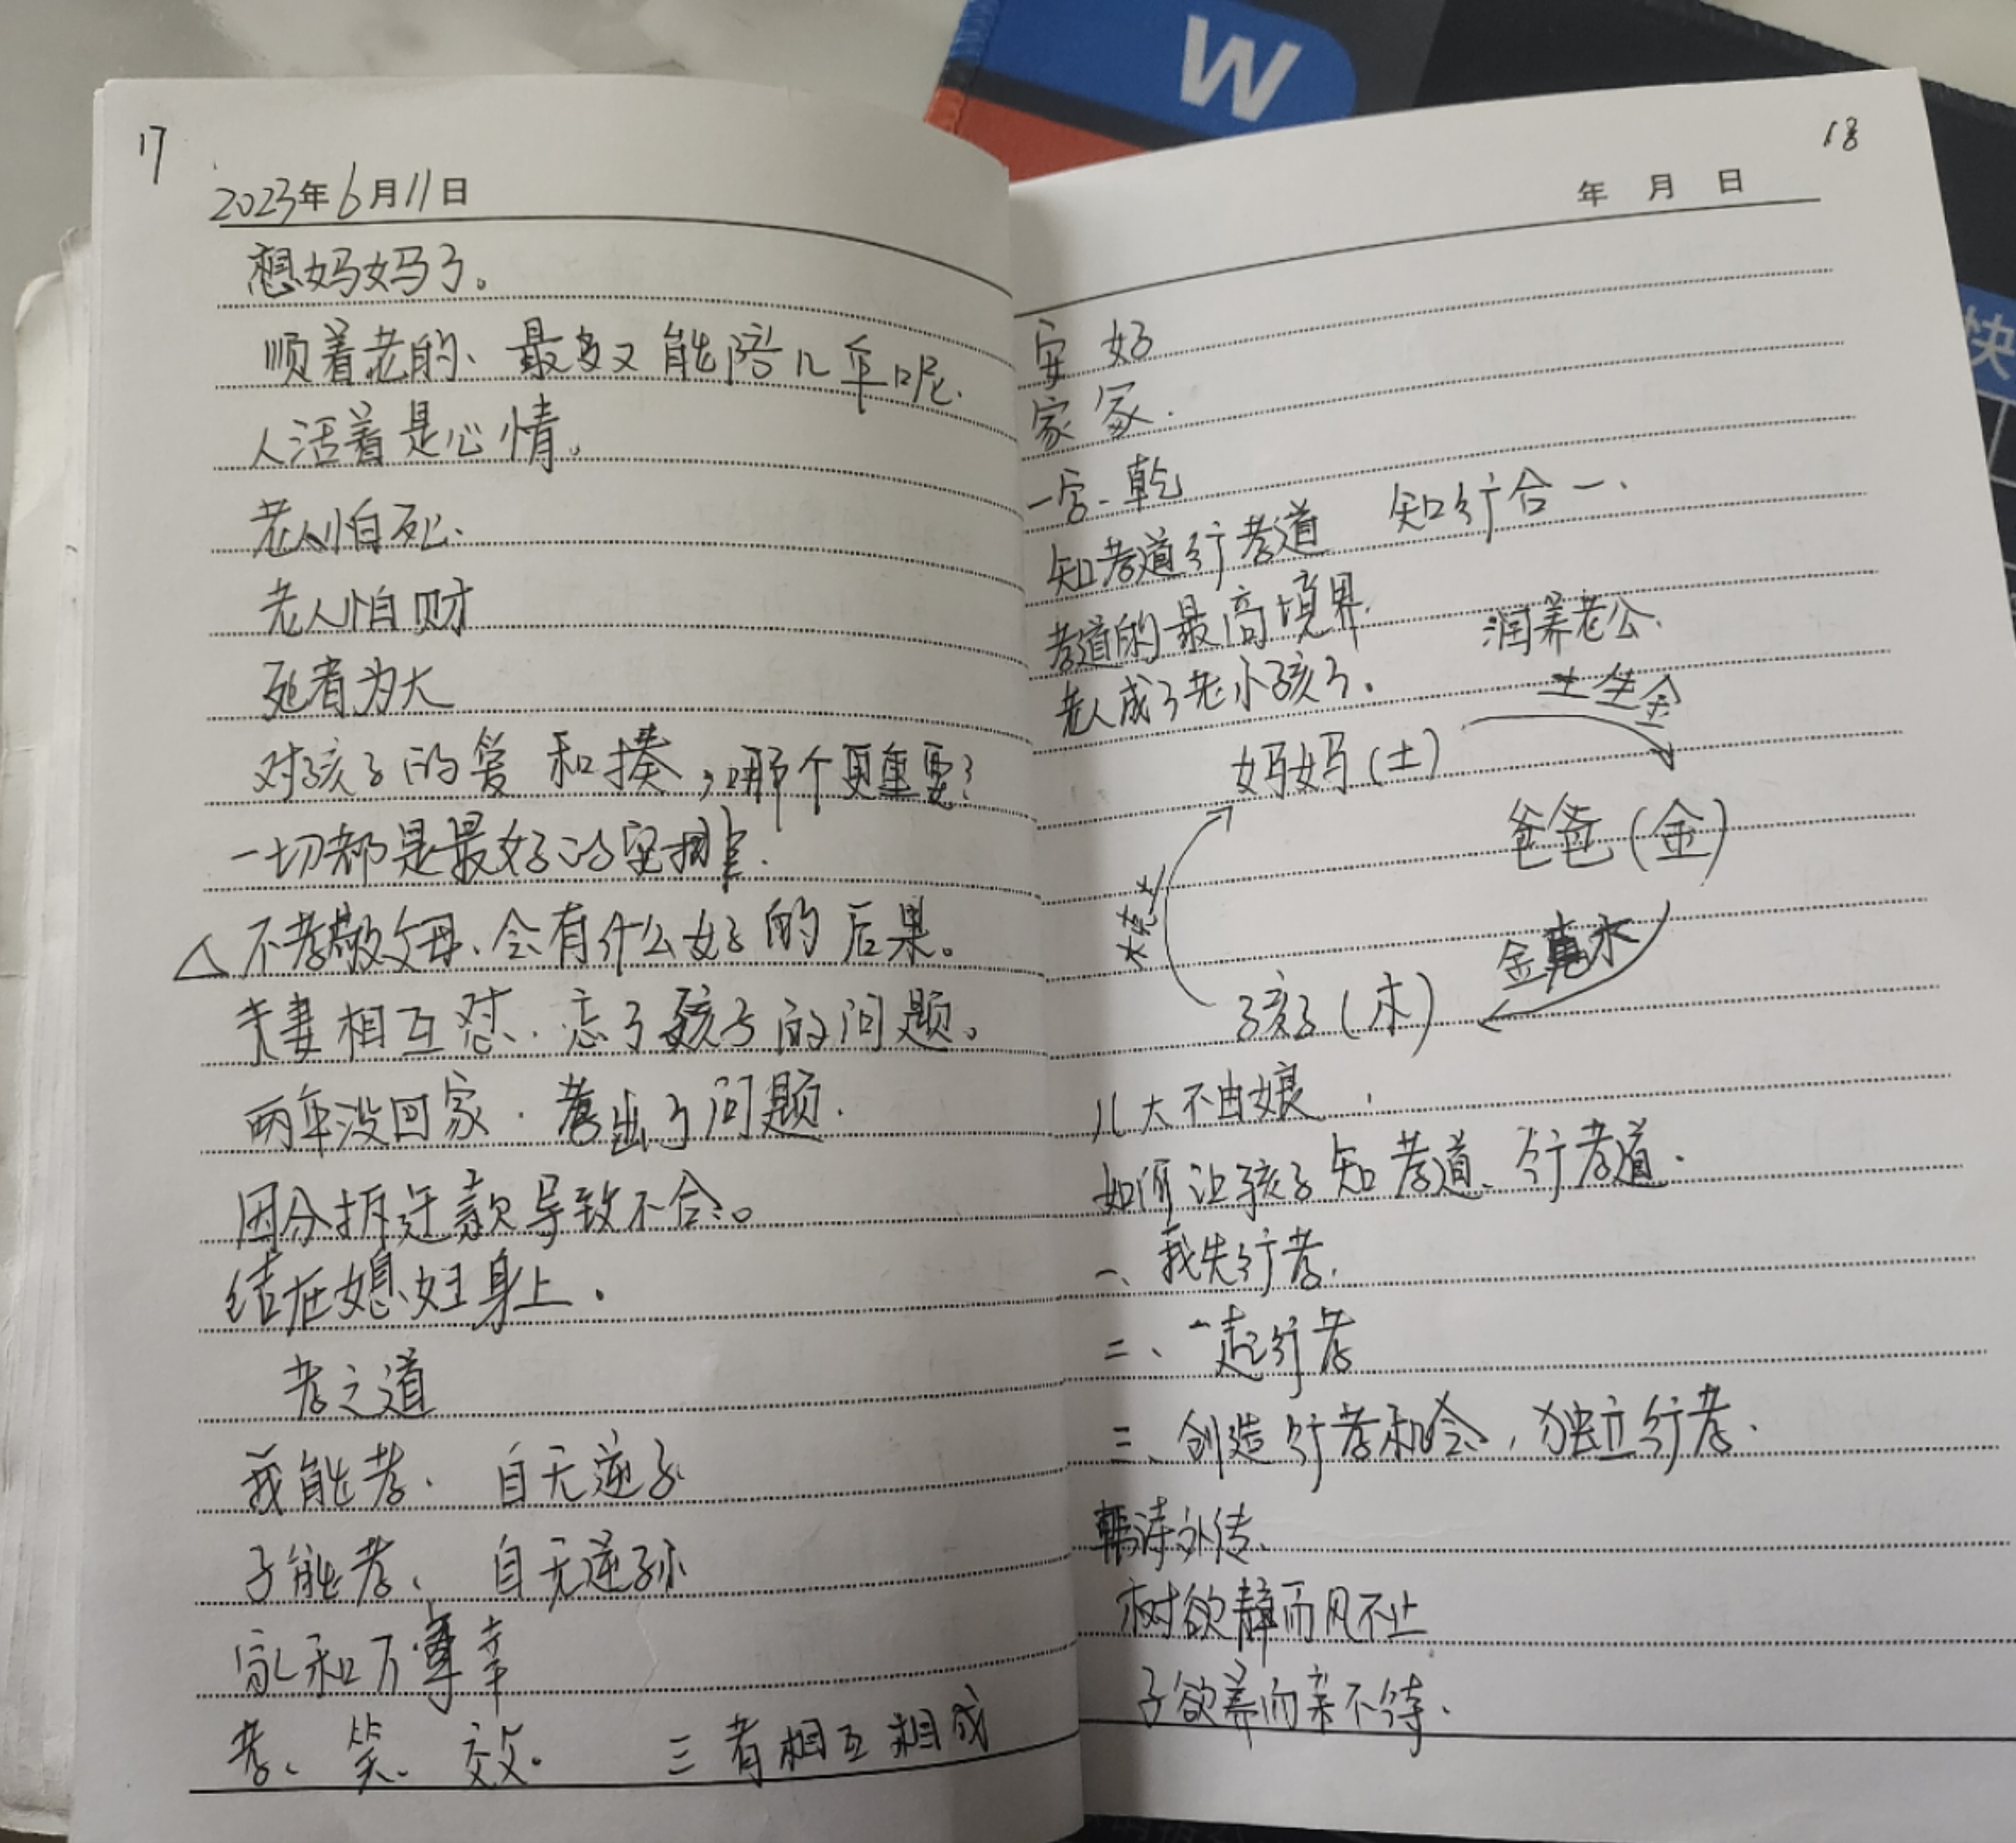 17
2023年6月11日
想妈妈了。
顺着老的、最多又能陪几年呢.
人活着是心情。
老人怕死、
老人怕财
死者为大
对孩子的爱和揍，哪个更重要？
一切都是最好的安排.
△不孝敬父母、会有什么好的后果。
夫妻相互怼、忘了孩子的问题。
两年没回家.出了问题.
因分拆迁款导致不合。
结在媳妇身上.
孝之道
我能孝. 自无逆子
子能孝、 自无逆孙
家和万事幸
孝、笑、效. 三者相互相成
18
年 月 日
安 好
家 家.
一宫、乾
知孝道行孝道 知行合一.
孝道的最高境界. 润养老公.
老人成了老小孩了. 土生金
妈妈(土)
爸爸(金)
木克土
金克木
孩子(木)
儿大不由娘.
如何让孩子知孝道、行孝道.
一、我先行孝.
二、一起行孝
三、创造行孝机会，独立行孝.
韩诗外传、
树欲静而风不止
子欲养而亲不待.
W
快